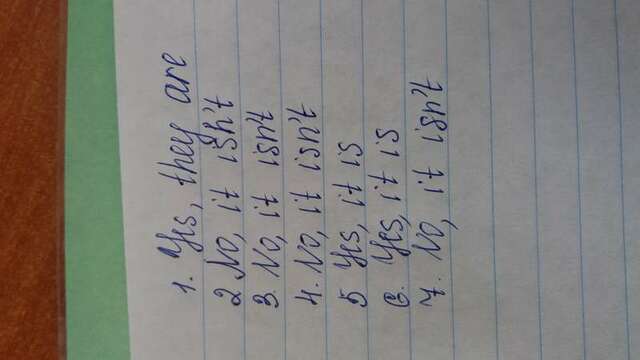 1. Yes, they are
2 No, it isn't
3. No, it isn't
4. No, it isn't
5 Yes, it is
6. Yes, it is
7. No, it isn't